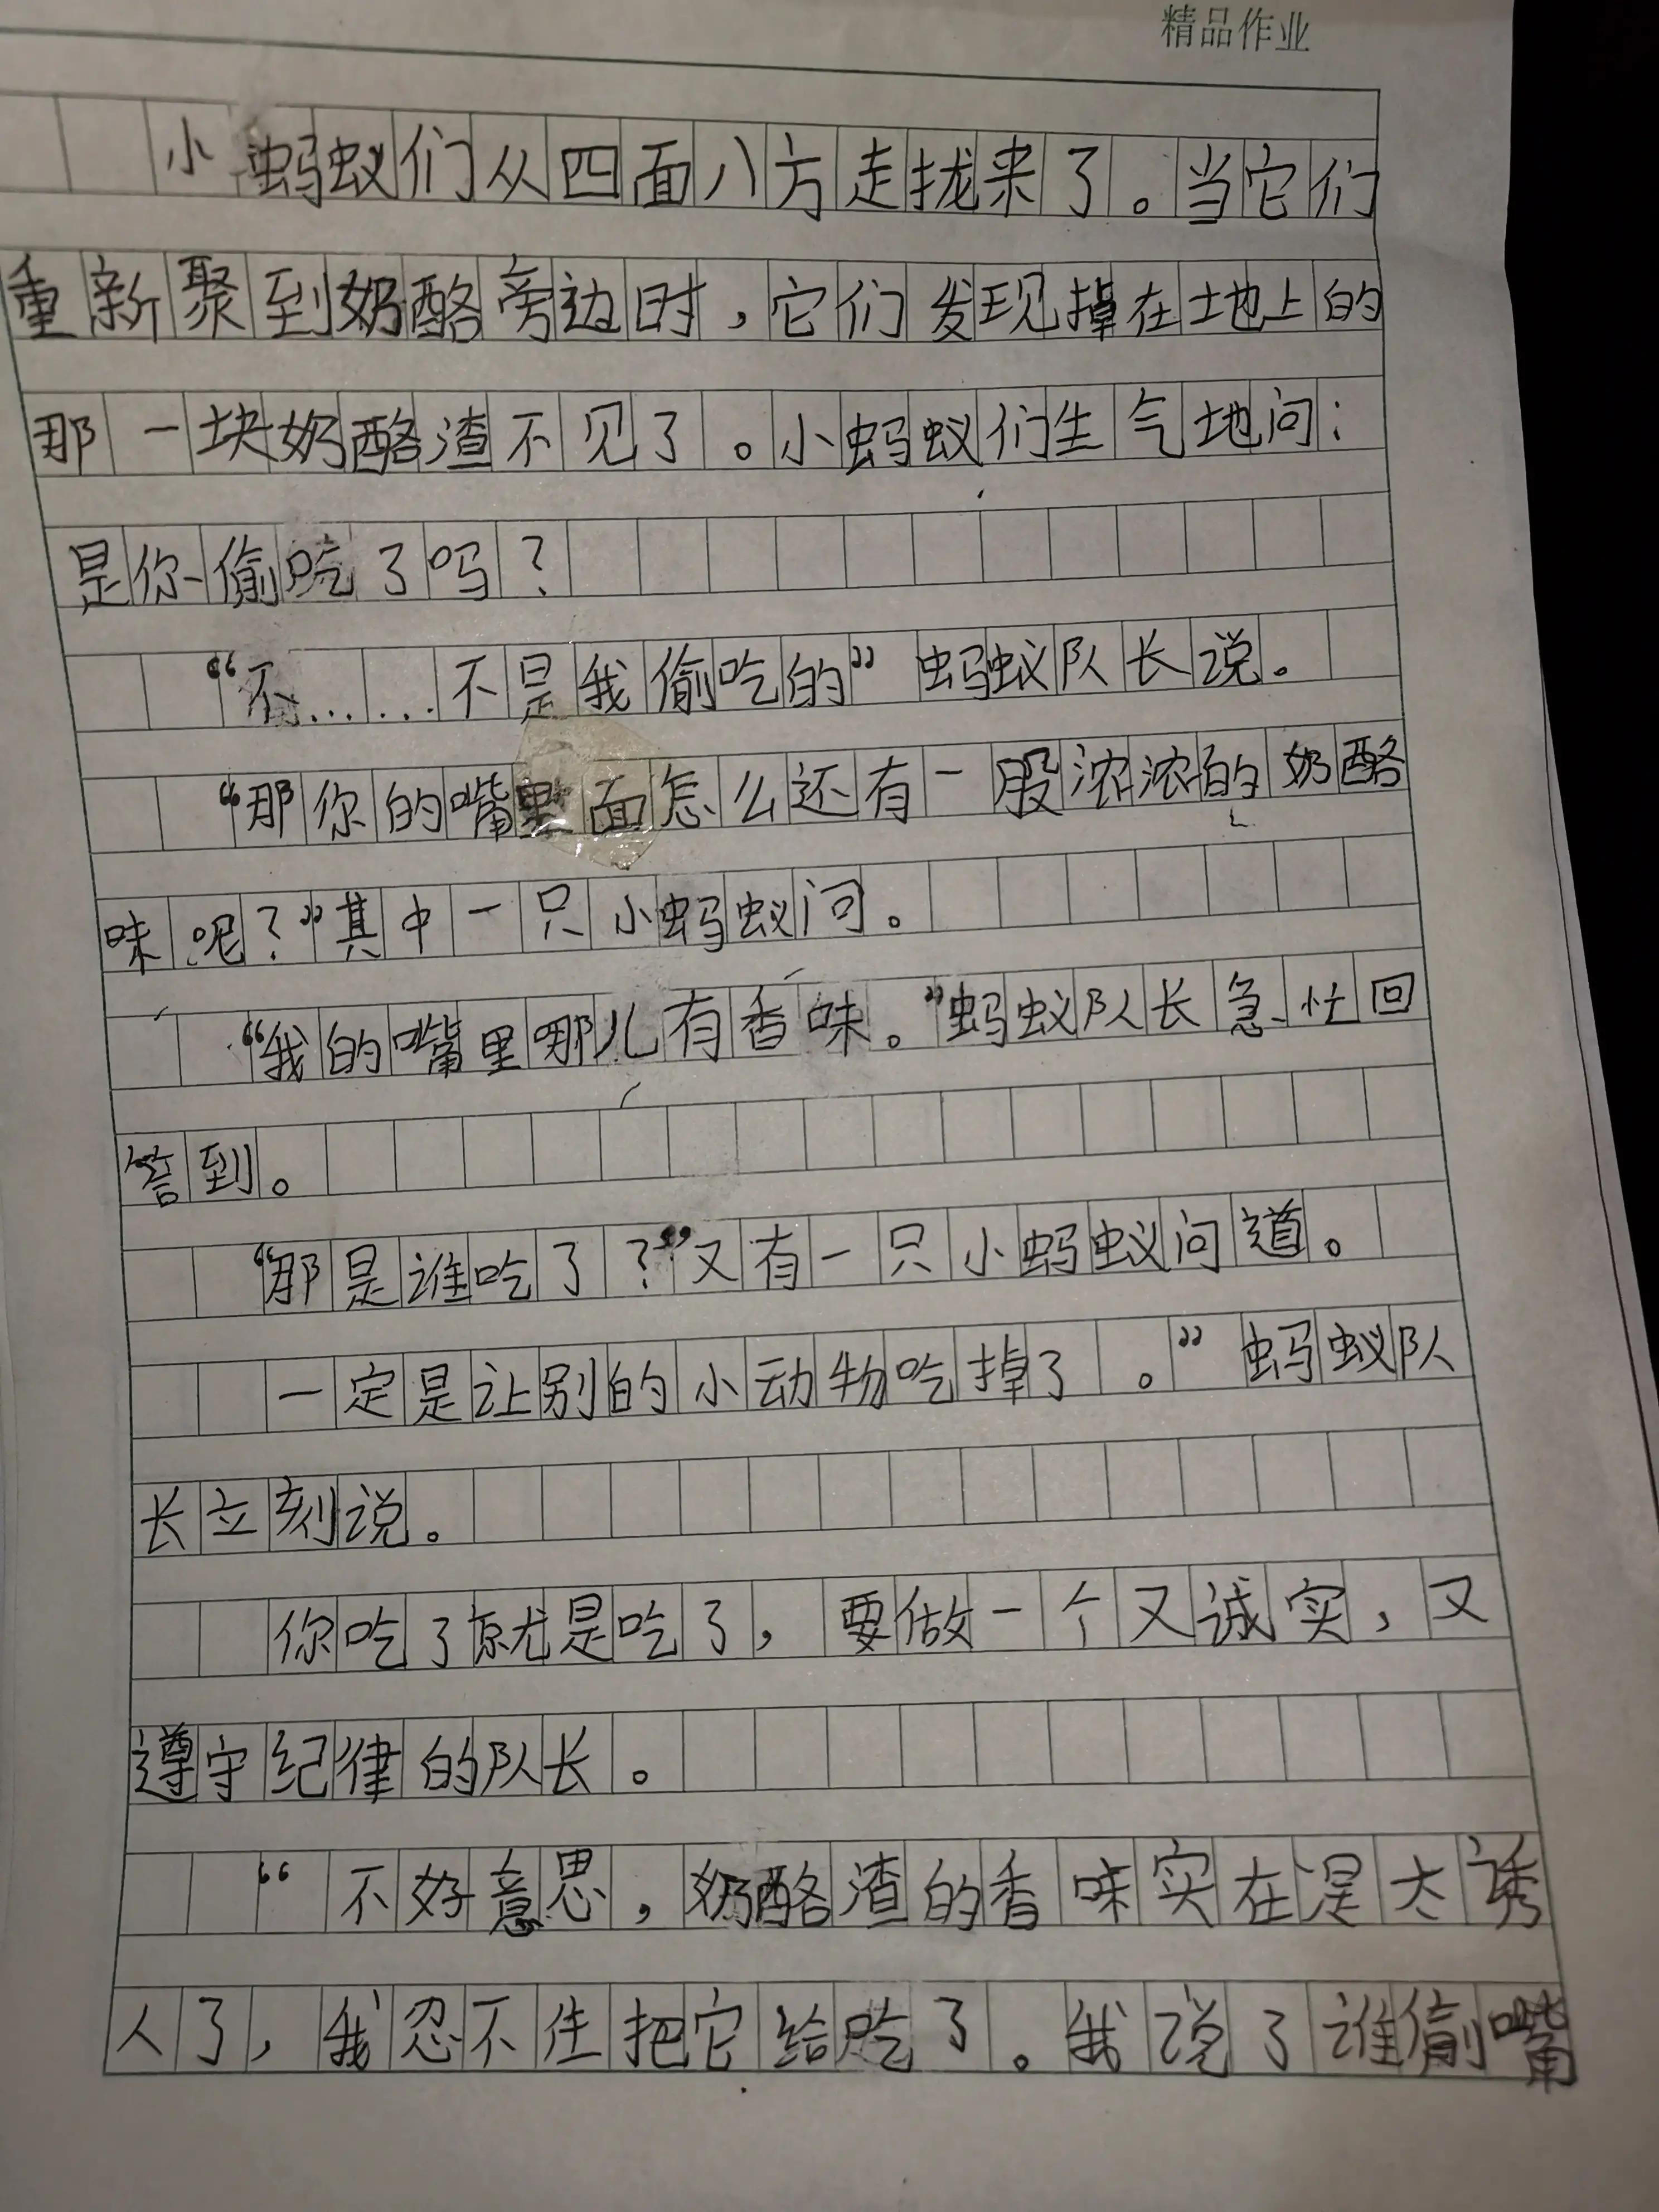 精品作业
小蚂蚁们从四面八方走拢来了。当它们
重新聚到奶酪旁边时,它们发现掉在地上的
那一块奶酪渣不见了。小蚂蚁们生气地问:
是你偷吃了吗?
“不……不是我偷吃的”蚂蚁队长说。
“那你的嘴里面怎么还有一股浓浓的奶酪
味呢?”其中一只小蚂蚁问。
“我的嘴里哪儿有香味。”蚂蚁队长急忙回
答到。
“那是谁吃了?”又有一只小蚂蚁问道。
一定是让别的小动物吃掉了。”蚂蚁队
长立刻说。
你吃了就是吃了,要做一个又诚实,又
遵守纪律的队长。
“不好意思,奶酪渣的香味实在是太诱
人了,我忍不住把它给吃了。我说了谁偷嘴